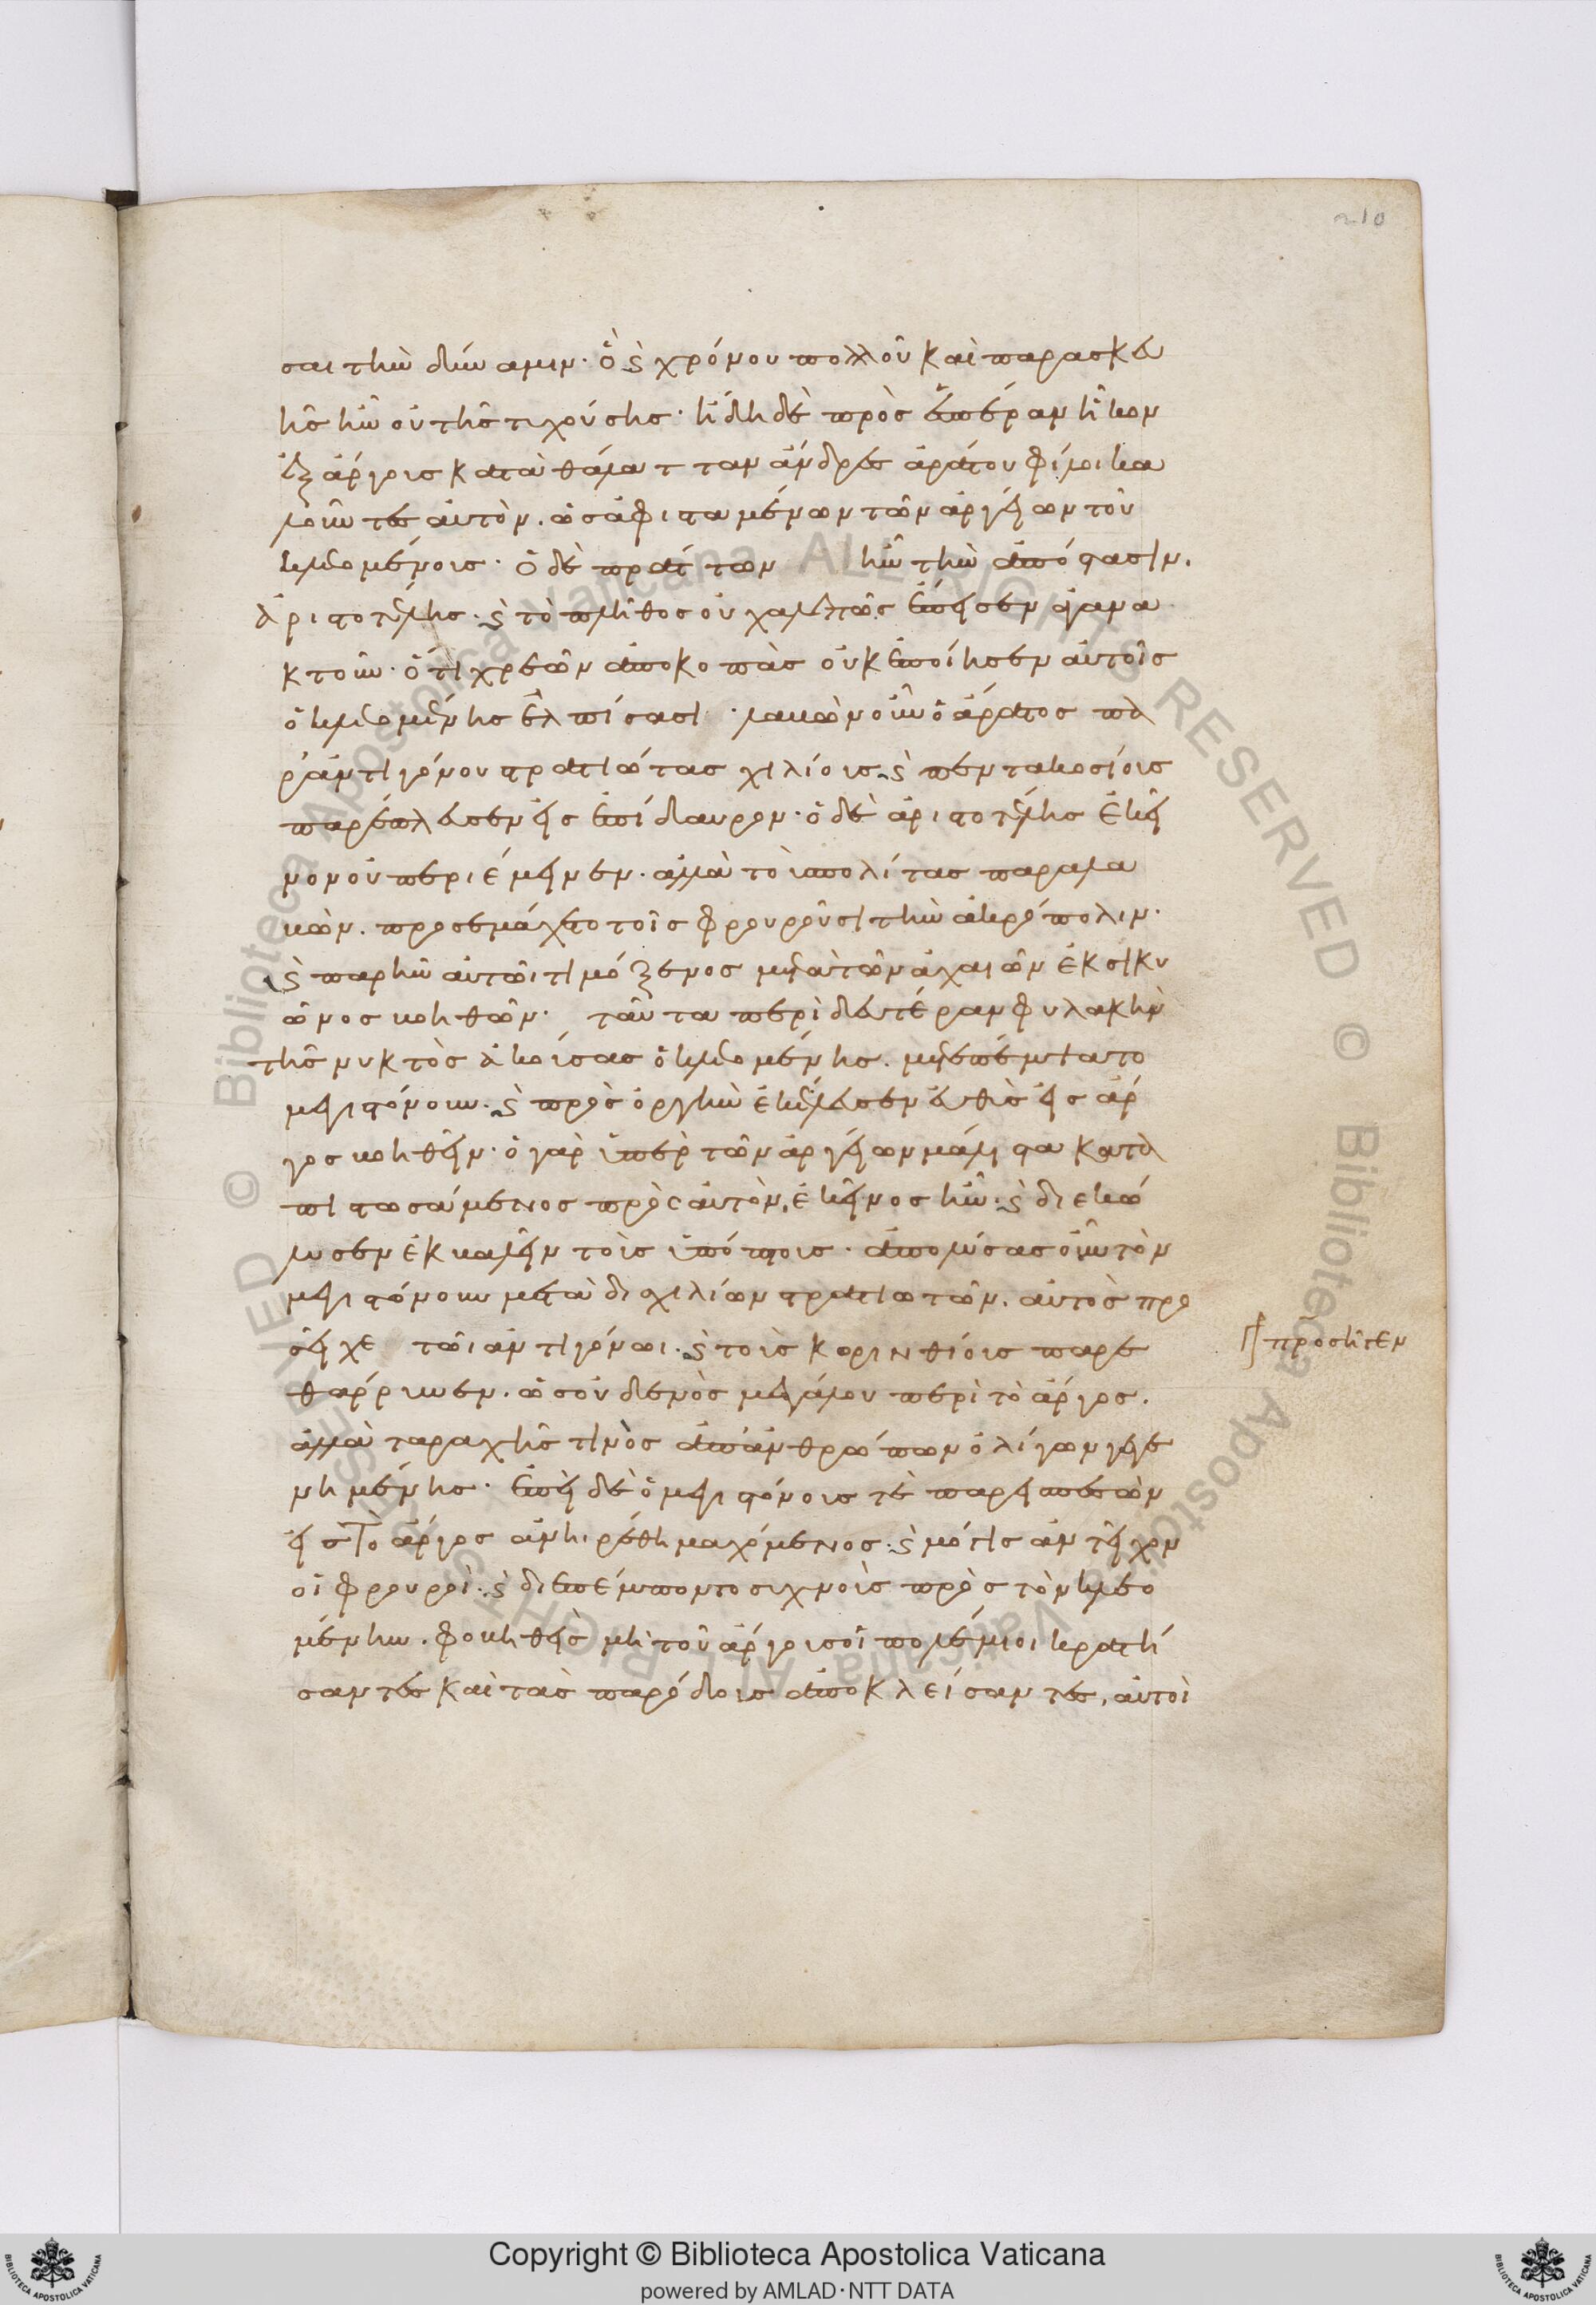 σαι τὴν δύναμιν· ὃ καὶ χρόνου πολλοῦ καὶ παρασκευ
ῆς ἦν οὐ τῆς τυχούσης· ἤδη δὲ πρὸς ἑσπέραν ἧκον
ἐξ ἄργους κατὰ θάλατταν ἄνδρες ἀράτου φίλοι κα
λοῦντες αὐτὸν. ὡς ἀφισταμένων τῶν ἀργείων τοῦ
κλεομένους· ὁ δὲ πράττων ἦν τὴν ἀπόστασιν.
ἀριστοτέλης· καὶ τὸ πλῆθος οὐ χαλεπῶς ἔπεισεν ἀγανα
κτοῦν· ὅτι χρεῶν ἀποκοπὰς οὐκ ἐποίησεν αὐτοῖς
ὁ κλεομένης ἐλπίσασι· λαβὼν οὖν ὁ ἄρατος πα
ρ' ἀντιγόνου στρατιώτας χιλίους καὶ πεντακοσίους
παρέπλευσεν εἰς ἐπίδαυρον· ὁ δὲ ἀριστοτέλης ἐκεῖ
νον οὐ περιέμεινεν. ἀλλὰ τοὺς πολίτας παραλα
βὼν. προσεμάχετο τοῖς φρουροῦσι τὴν ἀκρόπολιν·
καὶ παρῆν αὐτῶι τιμόξενος μετὰ τῶν ἀχαιῶν ἐκ σικυ
ῶνος βοηθῶν· ταῦτα περὶ δευτέραν φυλακὴν
τῆς νυκτὸς ἀκούσας ὁ κλεομένης. μετεπέμψατο
μεγιστόνουν. καὶ πρὸς ὀργὴν ἐκέλευσεν εὐθὺς εἰς ἄρ
γος βοηθεῖν· ὁ γὰρ ὑπὲρ τῶν ἀργείων μάλιστα κατα
πιστωσάμενος πρὸς αὐτὸν, ἐκεῖνος ἦν· καὶ διεκώ
λυσεν ἐκβαλεῖν τοὺς ὑπόπτους· ἀπολύσας οὖν τὸν
μεγιστόνουν μετὰ δισχιλίων στρατιωτῶν. αὐτὸς προ
σεῖχε τῶι ἀντιγόνωι. καὶ τοὺς κορινθίους παρε
θάρρυνεν. ὡς οὐδενὸς μεγάλου περὶ τὸ ἄργος.
ἀλλὰ ταραχῆς τινὸς ἀπ' ἀνθρώπων ὀλίγων γεγε
νημένης· ἐπεὶ δὲ ὁ μεγιστόνους τὲ παρεισπεσὼν
εἰς τὸ ἄργος ἀνηιρέθη μαχόμενος. καὶ μόλις ἀντεῖχον
οἱ φρουροὶ. καὶ διεπέμποντο συχνοὺς πρὸς τὸν κλεο
μένην. φοβηθεὶς μὴ τοῦ ἄργους οἱ πολέμιοι κρατή
σαντες καὶ τὰς παρόδους ἀποκλείσαντες, αὐτοὶ